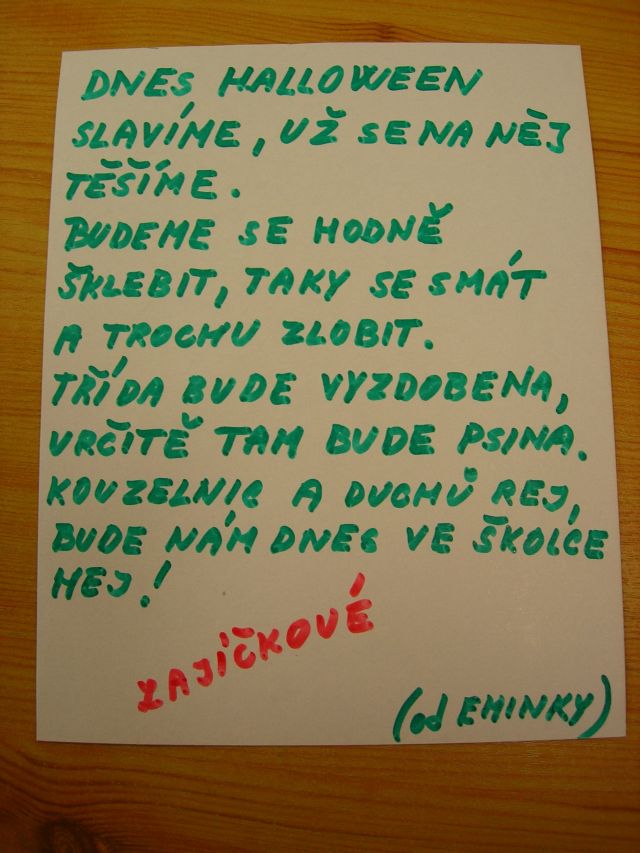 DNES HALLOWEEN
SLAVÍME, UŽ SE NA NĚJ
TĚŠÍME.
BUDEME SE HODNĚ
ŠKLEBIT, TAKY SE SMÁT
A TROCHU ZLOBIT.
TŘÍDA BUDE VYZDOBENA,
VRČITĚ TAM BUDE PSINA.
KOUZELNIC A DUCHŮ REJ,
BUDE NÁM DNES VE ŠKOLCE
HEJ!
ZAJÍČKOVÉ
(od EMINKY)